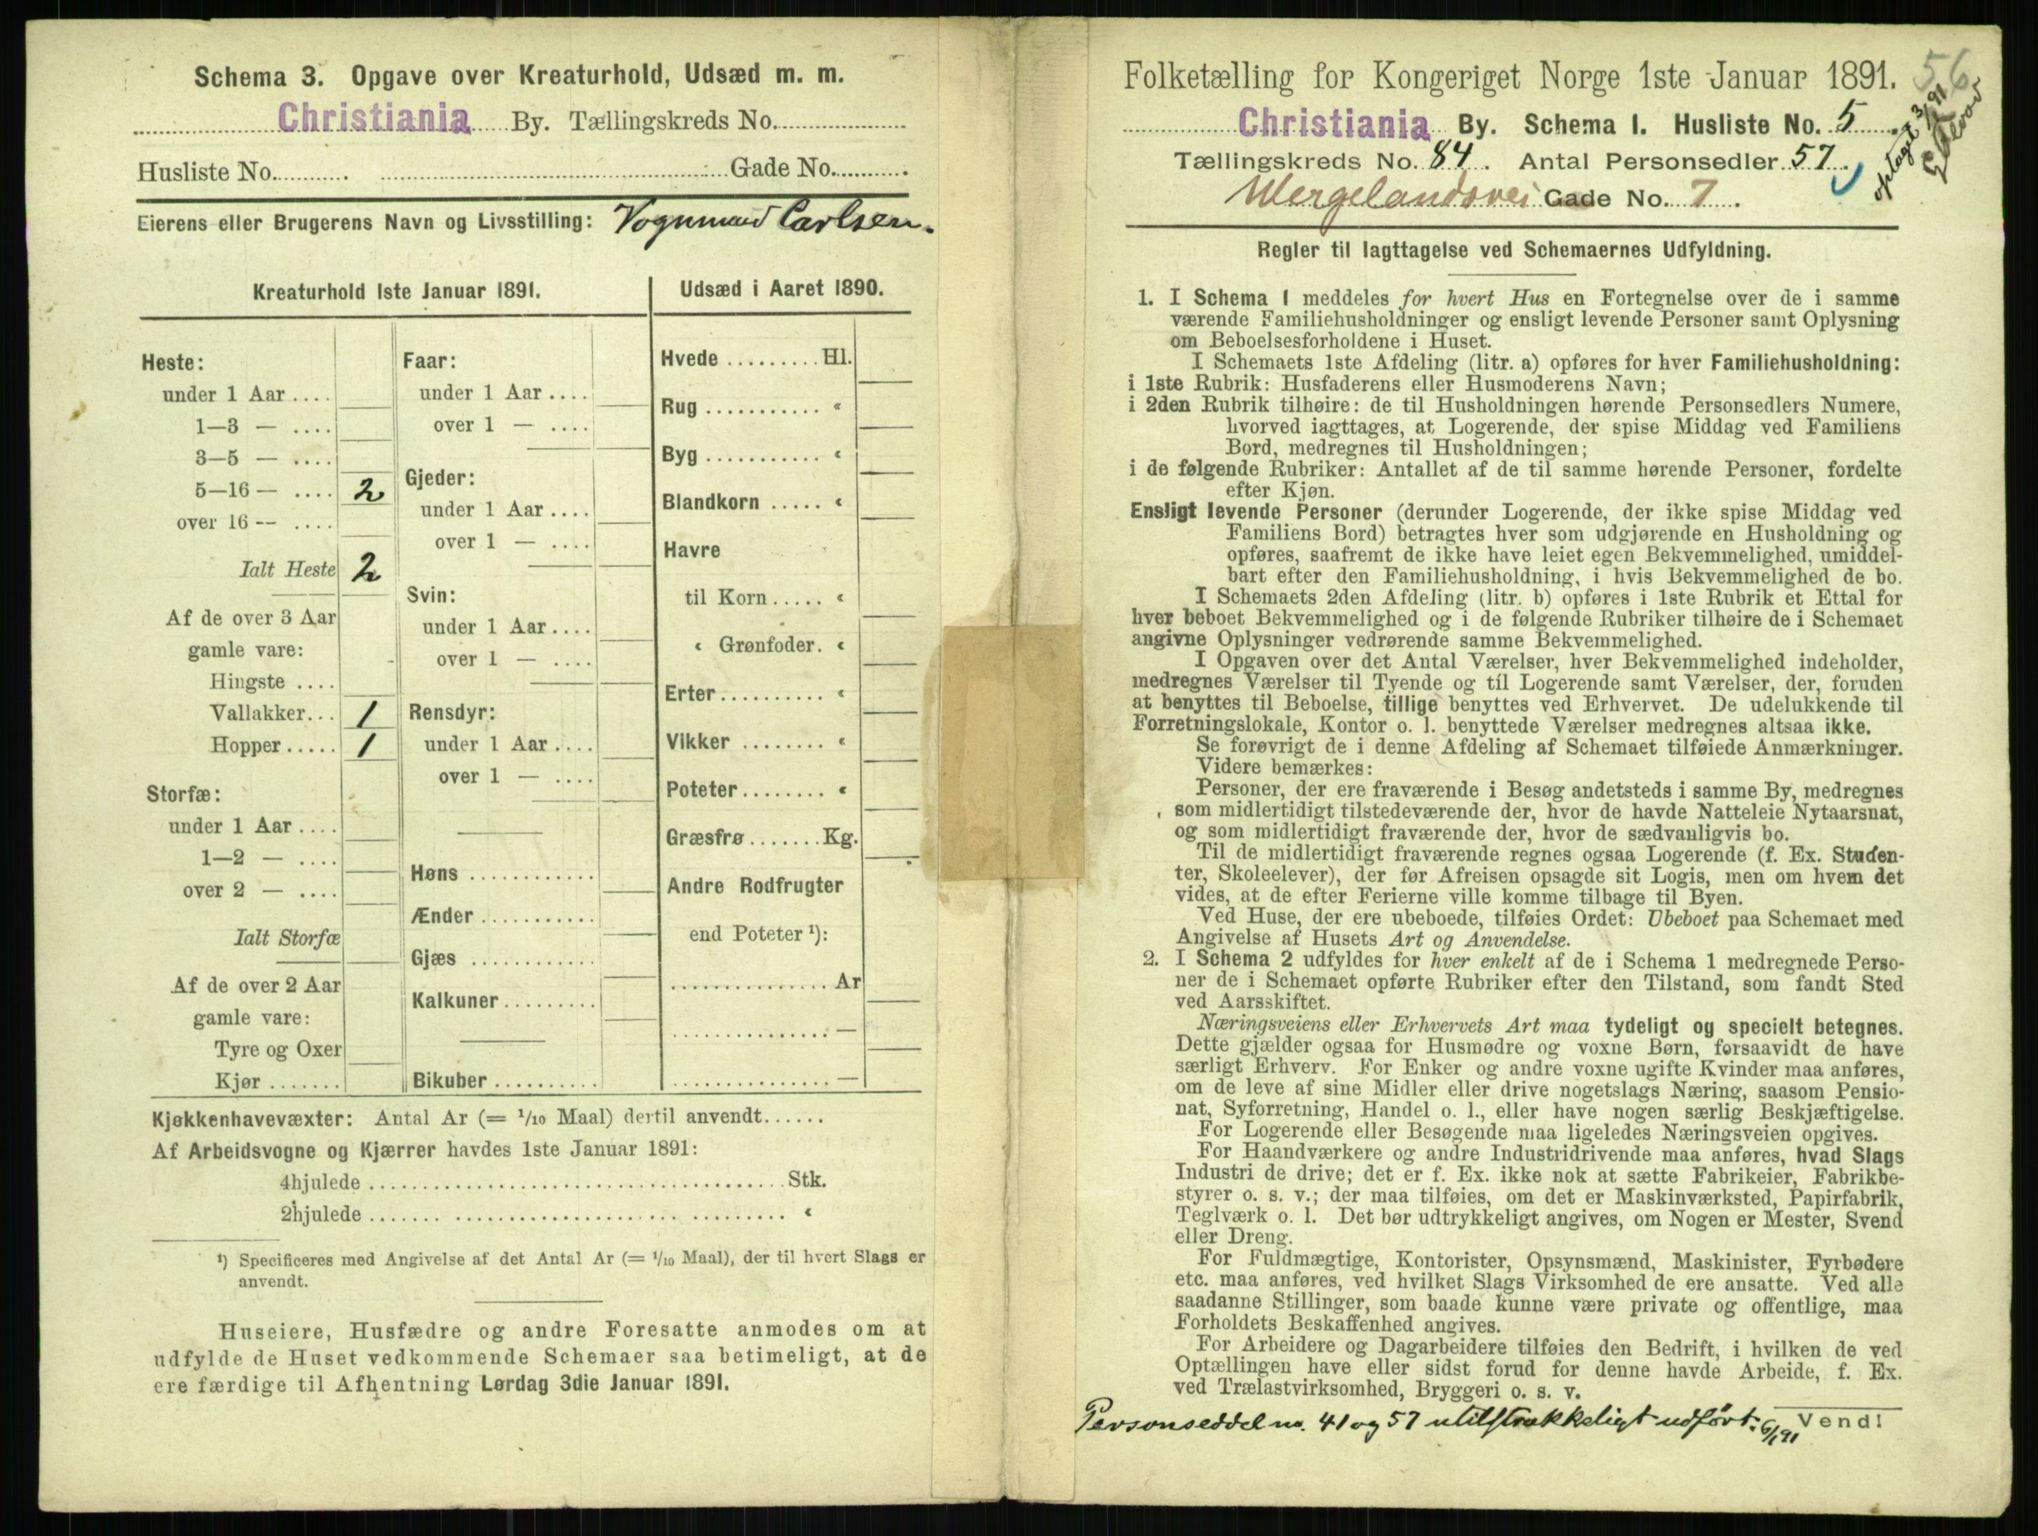 Schema 3. Opgave over Kreaturhold, Udsæd m. m.
Christiania By. Tællingskreds No.
Husliste No. Gade No.
Eierens eller Brugerens Navn og Livsstilling: Vognmand Carlsen.
Kreaturhold 1ste Januar 1891.
Heste:
under 1 Aar
1—3 —
3—5 —
5—16 — 2
over 16 —
Ialt Heste 2
Af de over 3 Aar
gamle vare:
Hingste
Vallakker 1
Hopper 1
Storfæ:
under 1 Aar
1—2 —
over 2 —
Ialt Storfæ
Af de over 2 Aar
gamle vare:
Tyre og Oxer
Kjør
Faar:
under 1 Aar
over 1 —
Gjeder:
under 1 Aar
over 1 —
Svin:
under 1 Aar
over 1 —
Rensdyr:
under 1 Aar
over 1 —
Høns
Ænder
Gjæs
Kalkuner
Bikuber
Udsæd i Aaret 1890.
Hvede Hl.
Rug "
Byg "
Blandkorn "
Havre
til Korn "
" Grønfoder. "
Erter "
Vikker "
Poteter "
Græsfrø Kg.
Andre Rodfrugter
end Poteter ¹):
Ar
—
—
Kjøkkenhavevæxter: Antal Ar (= 1/10 Maal) dertil anvendt
Af Arbeidsvogne og Kjærrer havdes 1ste Januar 1891:
4hjulede Stk.
2hjulede "
¹) Specificeres med Angivelse af det Antal Ar (= 1/10 Maal), der til hvert Slags er
anvendt.
Huseiere, Husfædre og andre Foresatte anmodes om at
udfylde de Huset vedkommende Schemaer saa betimeligt, at de
ere færdige til Afhentning Lørdag 3die Januar 1891.
Folketælling for Kongeriget Norge 1ste Januar 1891.
56
optaget 3/1 91
Christiania By. Schema 1. Husliste No. 5
Tællingskreds No. 84. Antal Personsedler 57.
Wergelandsvei Gade No. 7.
Regler til Iagttagelse ved Schemaernes Udfyldning.
1. I Schema 1 meddeles for hvert Hus en Fortegnelse over de i samme
værende Familiehusholdninger og ensligt levende Personer samt Oplysning
om Beboelsesforholdene i Huset.
I Schemaets 1ste Afdeling (litr. a) opføres for hver Familiehusholdning:
i 1ste Rubrik: Husfaderens eller Husmoderens Navn;
i 2den Rubrik tilhøire: de til Husholdningen hørende Personsedlers Numere,
hvorved iagttages, at Logerende, der spise Middag ved Familiens
Bord, medregnes til Husholdningen;
i de følgende Rubriker: Antallet af de til samme hørende Personer, fordelte
efter Kjøn.
Ensligt levende Personer (derunder Logerende, der ikke spise Middag ved
Familiens Bord) betragtes hver som udgjørende en Husholdning og
opføres, saafremt de ikke have leiet egen Bekvemmelighed, umiddel-
bart efter den Familiehusholdning, i hvis Bekvemmelighed de bo.
I Schemaets 2den Afdeling (litr. b) opføres i 1ste Rubrik et Ettal for
hver beboet Bekvemmelighed og i de følgende Rubriker tilhøire de i Schemaet
angivne Oplysninger vedrørende samme Bekvemmelighed.
I Opgaven over det Antal Værelser, hver Bekvemmelighed indeholder,
medregnes Værelser til Tyende og til Logerende samt Værelser, der, foruden
at benyttes til Beboelse, tillige benyttes ved Erhvervet. De udelukkende til
Forretningslokale, Kontor o. l. benyttede Værelser medregnes altsaa ikke.
Se forøvrigt de i denne Afdeling af Schemaet tilføiede Anmærkninger.
Videre bemærkes:
Personer, der ere fraværende i Besøg andetsteds i samme By, medregnes
som midlertidigt tilstedeværende der, hvor de havde Natteleie Nytaarsnat,
og som midlertidigt fraværende der, hvor de sædvanligvis bo.
Til de midlertidigt fraværende regnes ogsaa Logerende (f. Ex. Studen-
ter, Skoleelever), der før Afreisen opsagde sit Logis, men om hvem det
vides, at de efter Ferierne ville komme tilbage til Byen.
Ved Huse, der ere ubeboede, tilføies Ordet: Ubeboet paa Schemaet med
Angivelse af Husets Art og Anvendelse.
2. I Schema 2 udfyldes for hver enkelt af de i Schema 1 medregnede Perso-
ner de i Schemaet opførte Rubriker efter den Tilstand, som fandt Sted
ved Aarsskiftet.
Næringsveiens eller Erhvervets Art maa tydeligt og specielt betegnes.
Dette gjælder ogsaa for Husmødre og voxne Børn, forsaavidt de have
særligt Erhverv. For Enker og andre voxne ugifte Kvinder maa anføres,
om de leve af sine Midler eller drive nogetslags Næring, saasom Pensio-
nat, Syforretning, Handel o. l., eller have nogen særlig Beskjæftigelse.
For Logerende eller Besøgende maa ligeledes Næringsveien opgives.
For Haandværkere og andre Industridrivende maa anføres, hvad Slags
Industri de drive; det er f. Ex. ikke nok at sætte Fabrikeier, Fabrikbe-
styrer o. s. v.; der maa tilføies, om det er Maskinværksted, Papirfabrik,
Teglværk o. l. Det bør udtrykkeligt angives, om Nogen er Mester, Svend
eller Dreng.
For Fuldmægtige, Kontorister, Opsynsmænd, Maskinister, Fyrbødere
etc. maa anføres, ved hvilket Slags Virksomhed de ere ansatte. Ved alle
saadanne Stillinger, som baade kunne være private og offentlige, maa
Forholdets Beskaffenhed angives.
For Arbeidere og Dagarbeidere tilføies den Bedrift, i hvilken de ved
Optællingen have eller sidst forud for denne havde Arbeide, f. Ex.
ved Trælastvirksomhed, Bryggeri o. s. v.
Personseddel no. 41 og 57 utilstrækkeligt udført. 6/1 91
Vend!